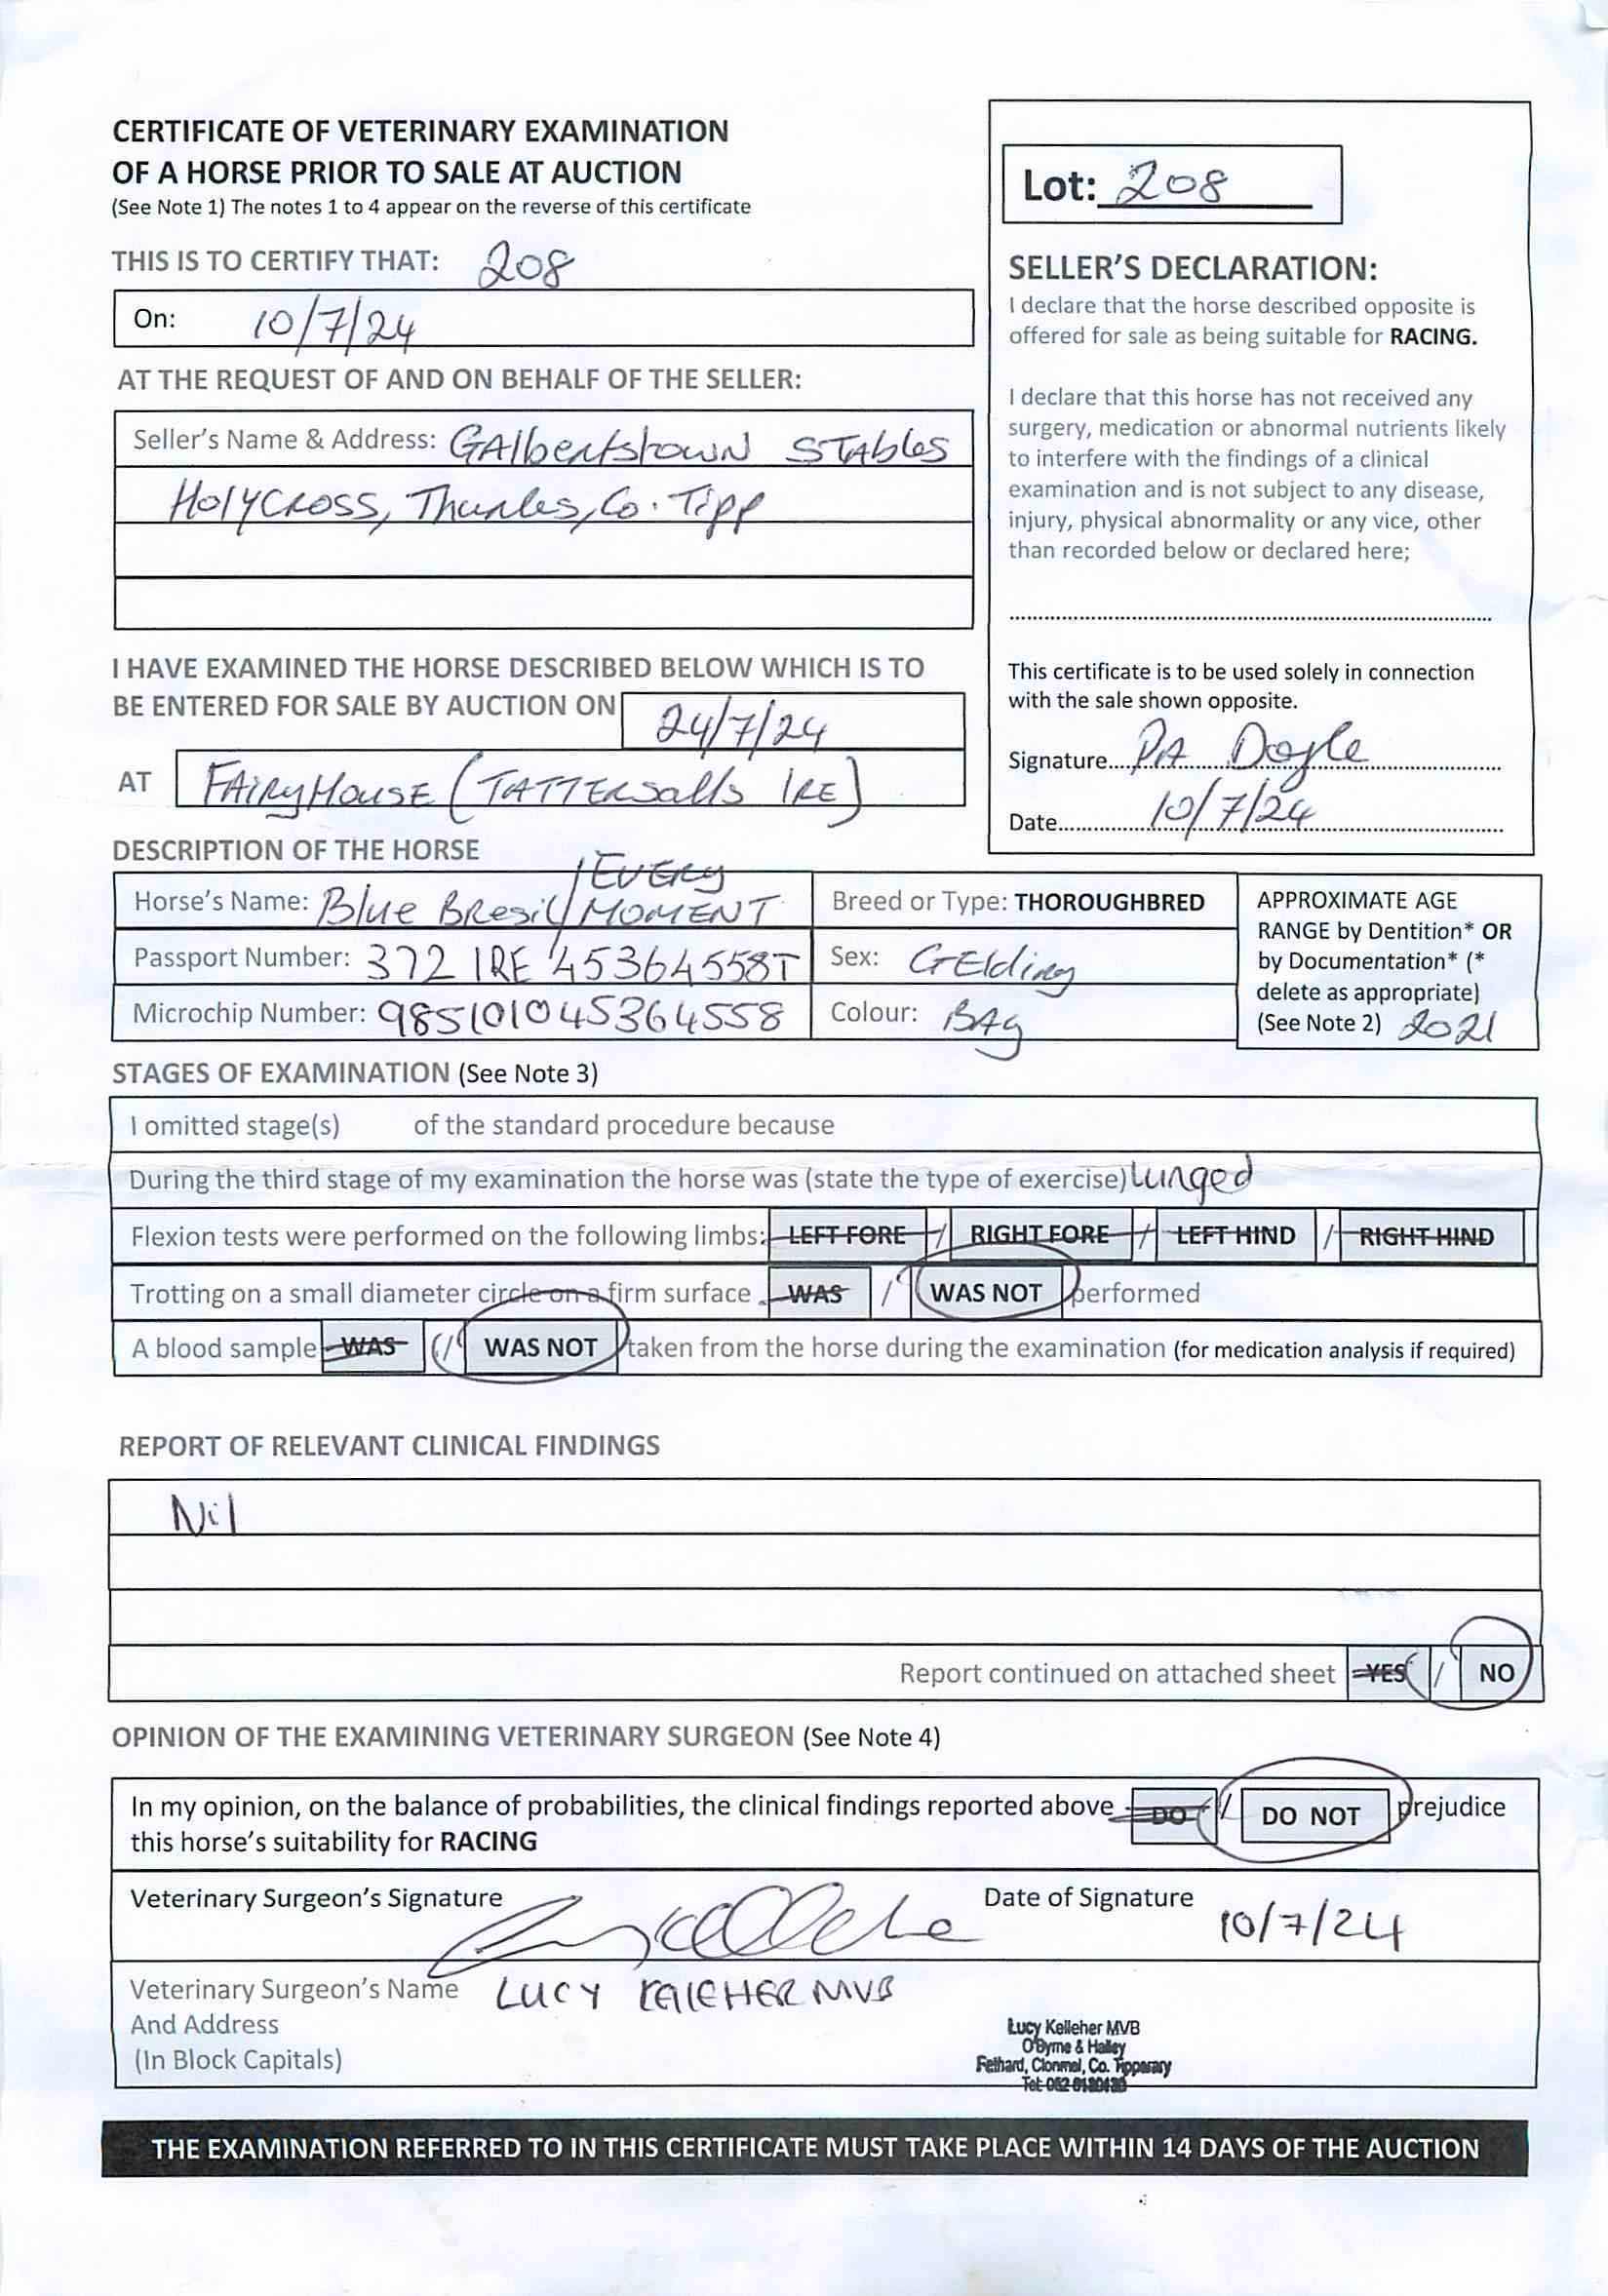 CERTIFICATE OF VETERINARY EXAMINATION
OF A HORSE PRIOR TO SALE AT AUCTION
(See Note 1) The notes 1 to 4 appear on the reverse of this certificate
THIS IS TO CERTIFY THAT: 208
On: 10/7/24
AT THE REQUEST OF AND ON BEHALF OF THE SELLER:
Seller's Name & Address: GAlbertstown STAbles
HolyCross, Thurles, Co. Tipp
I HAVE EXAMINED THE HORSE DESCRIBED BELOW WHICH IS TO
BE ENTERED FOR SALE BY AUCTION ON 24/7/24
AT FAIRyHouSE (TATTERSalls IRE)
Lot: 208
SELLER'S DECLARATION:
I declare that the horse described opposite is
offered for sale as being suitable for RACING.
I declare that this horse has not received any
surgery, medication or abnormal nutrients likely
to interfere with the findings of a clinical
examination and is not subject to any disease,
injury, physical abnormality or any vice, other
than recorded below or declared here;
This certificate is to be used solely in connection
with the sale shown opposite.
Signature.... PA Doyle
Date.... 10/7/24
DESCRIPTION OF THE HORSE
Horse's Name: Blue Bresil / EVERy MOMENT
Breed or Type: THOROUGHBRED
Passport Number: 372 IRE 45364558T
Sex: GElding
Microchip Number: 985101045364558
Colour: BAy
APPROXIMATE AGE
RANGE by Dentition* OR
by Documentation* (*
delete as appropriate)
(See Note 2) 2021
STAGES OF EXAMINATION (See Note 3)
I omitted stage(s) of the standard procedure because
During the third stage of my examination the horse was (state the type of exercise) Lunged
Flexion tests were performed on the following limbs: LEFT FORE / RIGHT FORE / LEFT HIND / RIGHT HIND
Trotting on a small diameter circle on a firm surface WAS / WAS NOT performed
A blood sample WAS / WAS NOT taken from the horse during the examination (for medication analysis if required)
REPORT OF RELEVANT CLINICAL FINDINGS
Nil
Report continued on attached sheet YES / NO
OPINION OF THE EXAMINING VETERINARY SURGEON (See Note 4)
In my opinion, on the balance of probabilities, the clinical findings reported above DO / DO NOT prejudice
this horse's suitability for RACING
Veterinary Surgeon's Signature
Date of Signature 10/7/24
Veterinary Surgeon's Name LUCY KELLEHER MVB
And Address
(In Block Capitals)
Lucy Kelleher MVB
O'Byrne & Halley
Fethard, Clonmel, Co. Tipperary
Tel:
THE EXAMINATION REFERRED TO IN THIS CERTIFICATE MUST TAKE PLACE WITHIN 14 DAYS OF THE AUCTION